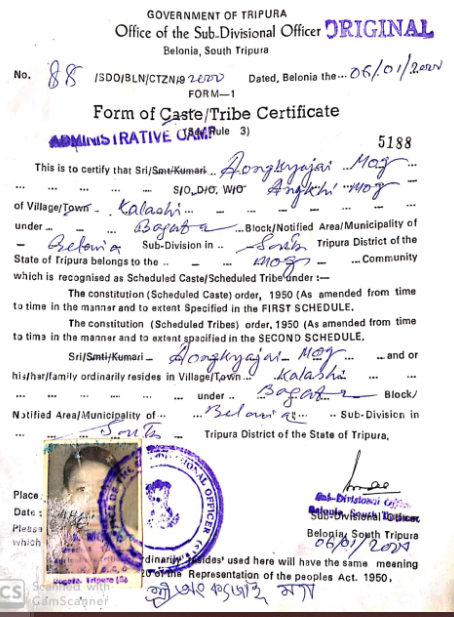 GOVERNMENT OF TRIPURA
Office of the Sub-Divisional Officer ORIGINAL
Belonia, South Tripura
No. 88 /SDO/BLN/CTZN/9 2000 Dated, Belonia the... 06/01/2000
FORM—1
Form of Caste/Tribe Certificate
(See Rule 3)
ADMINISTRATIVE CAMP
5188
This is to certify that Sri/Smt/Kumari - Aongkyajai Mog
S/O, D/O, W/O Angkhi Mog
of Village/Town - Kalashi
under - Bagafa Block/Notified Area/Municipality of
Belonia Sub-Division in .. South Tripura District of the
State of Tripura belongs to the Mog Community
which is recognised as Scheduled Caste/Scheduled Tribe under :—
The constitution (Scheduled Caste) order, 1950 (As amended from time
to time in the manner and to extent Specified in the FIRST SCHEDULE.
The constitution (Scheduled Tribes) order, 1950 (As amended from time
to time in the manner and to extent specified in the SECOND SCHEDULE.
Sri/Smti/Kumari - Aongkyajai Mog ... and or
his/her/family ordinarily resides in Village/Town... Kalashi
under .. Bagafa Block/
Notified Area/Municipality of - Belonia - Sub-Division in
South Tripura District of the State of Tripura,
Place
Date :
Sub-Divisional Officer
Belonia, South Tripura
Sub-Divisional Officer,
Belonia, South Tripura
06/01/2000
Please
which
ordinarily resides' used here will have the same meaning
20 of the Representation of the peoples Act. 1950.
CS Scanned with
CamScanner